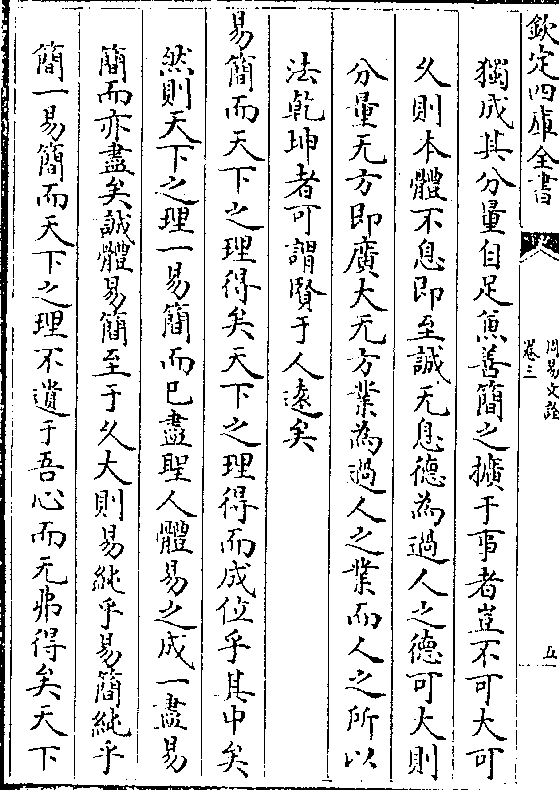 欽定四庫全書
周易文詮
卷三
五
獨成其分量自足兼善簡之擴于事者豈不可大可
久則本體不息即至誠无息德為過人之德可大則
分量无方即廣大无方業為過人之業而人之所以
法乾坤者可謂賢于人遠矣
易簡而天下之理得矣天下之理得而成位乎其中矣
然則天下之理一易簡而已盡聖人體易之成一盡易
簡而亦盡矣誠體易簡至于久大則易純乎易簡純乎
簡一易簡而天下之理不遺于吾心而无弗得矣天下